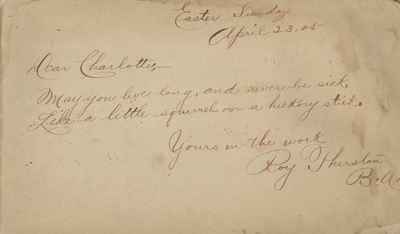 Easter Sunday
April 23, 05
Dear Charlotte,
May you live long, and never be sick,
Like a little squirrel on a hickory stick.
Yours in the work
Roy Thurston
B.A.